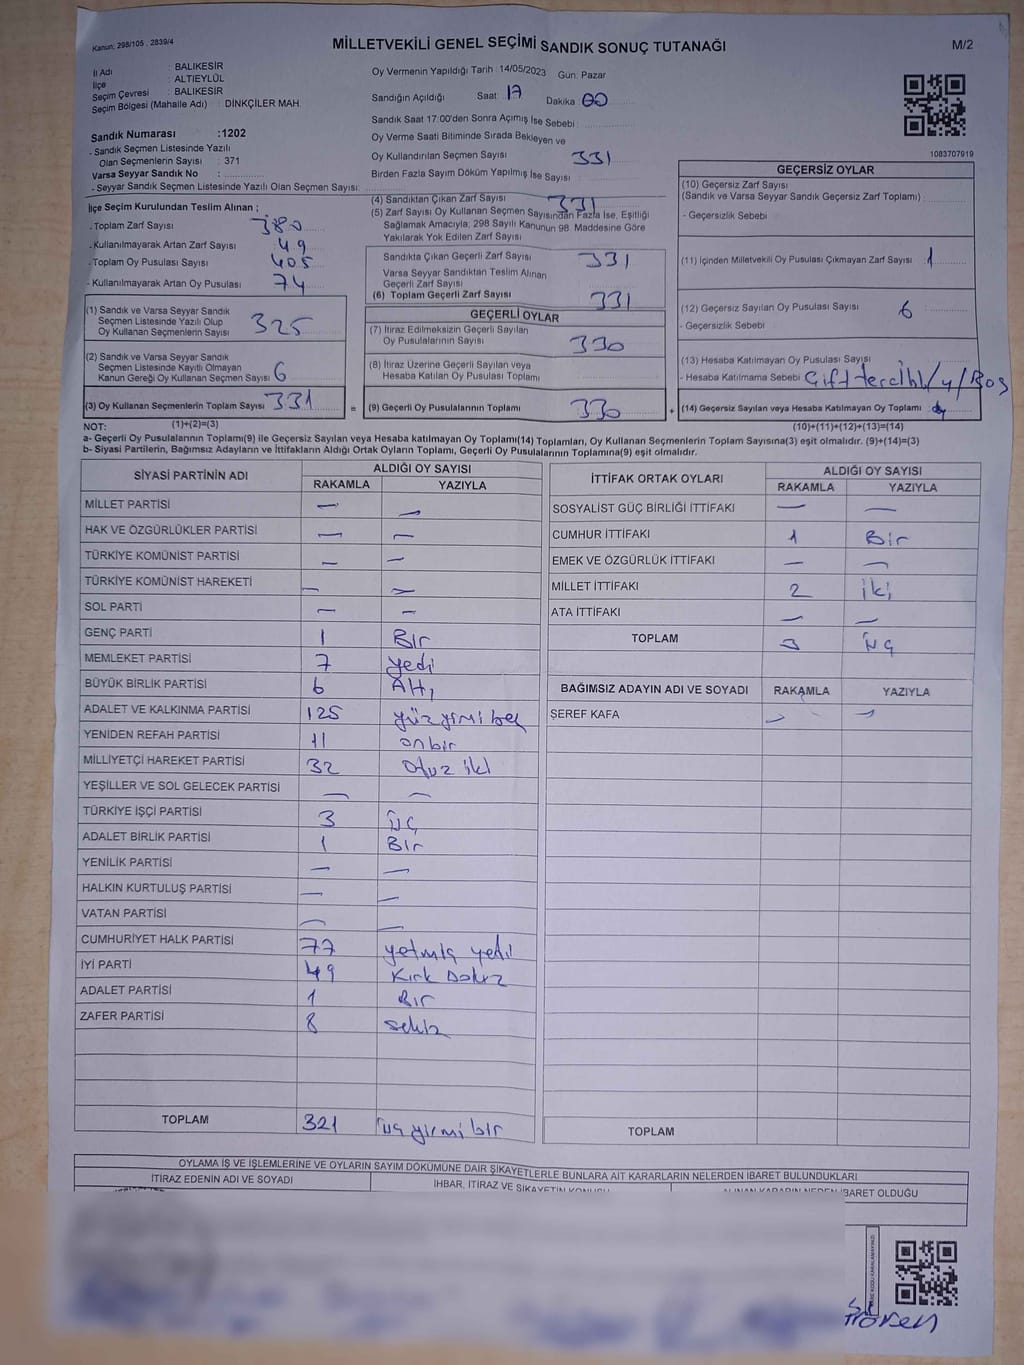 Kanun: 298/105 , 2839/4
MİLLETVEKİLİ GENEL SEÇİMİ SANDIK SONUÇ TUTANAĞI
M/2
İl Adı : BALIKESİR
İlçe : ALTIEYLÜL
Seçim Çevresi : BALIKESİR
Seçim Bölgesi (Mahalle Adı) : DİNKÇİLER MAH.
Sandık Numarası :1202
- Sandık Seçmen Listesinde Yazılı
Olan Seçmenlerin Sayısı : 371
Varsa Seyyar Sandık No :
- Seyyar Sandık Seçmen Listesinde Yazılı Olan Seçmen Sayısı:
Oy Vermenin Yapıldığı Tarih : 14/05/2023 Gün: Pazar
Sandığın Açıldığı Saat 17 Dakika 00
Sandık Saat 17:00'den Sonra Açımış İse Sebebi :
Oy Verme Saati Bitiminde Sırada Bekleyen ve
Oy Kullandırılan Seçmen Sayısı 331
Birden Fazla Sayım Döküm Yapılmış İse Sayısı :
1083707919
İlçe Seçim Kurulundan Teslim Alınan ;
- Toplam Zarf Sayısı 380
- Kullanılmayarak Artan Zarf Sayısı 49
- Toplam Oy Pusulası Sayısı 405
- Kullanılmayarak Artan Oy Pusulası 74
(1) Sandık ve Varsa Seyyar Sandık
Seçmen Listesinde Yazılı Olup
Oy Kullanan Seçmenlerin Sayısı 325
(2) Sandık ve Varsa Seyyar Sandık
Seçmen Listesinde Kayıtlı Olmayan
Kanun Gereği Oy Kullanan Seçmen Sayısı 6
(3) Oy Kullanan Seçmenlerin Toplam Sayısı 331
(4) Sandıktan Çıkan Zarf Sayısı 331
(5) Zarf Sayısı Oy Kullanan Seçmen Sayısından Fazla İse, Eşitliği
Sağlamak Amacıyla; 298 Sayılı Kanunun 98. Maddesine Göre
Yakılarak Yok Edilen Zarf Sayısı
Sandıkta Çıkan Geçerli Zarf Sayısı 331
Varsa Seyyar Sandıktan Teslim Alınan
Geçerli Zarf Sayısı
(6) Toplam Geçerli Zarf Sayısı 331
GEÇERLİ OYLAR
(7) İtiraz Edilmeksizin Geçerli Sayılan
Oy Pusulalarının Sayısı 330
(8) İtiraz Üzerine Geçerli Sayılan veya
Hesaba Katılan Oy Pusulası Toplamı
= (9) Geçerli Oy Pusulalarının Toplamı 330
GEÇERSİZ OYLAR
(10) Geçersiz Zarf Sayısı
(Sandık ve Varsa Seyyar Sandık Geçersiz Zarf Toplamı) :
- Geçersizlik Sebebi
(11) İçinden Milletvekili Oy Pusulası Çıkmayan Zarf Sayısı 1
(12) Geçersiz Sayılan Oy Pusulası Sayısı 6
- Geçersizlik Sebebi
(13) Hesaba Katılmayan Oy Pusulası Sayısı
- Hesaba Katılmama Sebebi Çift tercihl/4/Boş
+ (14) Geçersiz Sayılan veya Hesaba Katılmayan Oy Toplamı
NOT: (1)+(2)=(3)
(10)+(11)+(12)+(13)=(14)
a- Geçerli Oy Pusulalarının Toplamı(9) ile Geçersiz Sayılan veya Hesaba katılmayan Oy Toplamı(14) Toplamları, Oy Kullanan Seçmenlerin Toplam Sayısına(3) eşit olmalıdır. (9)+(14)=(3)
b- Siyasi Partilerin, Bağımsız Adayların ve İttifakların Aldığı Ortak Oyların Toplamı, Geçerli Oy Pusulalarının Toplamına(9) eşit olmalıdır.
SİYASİ PARTİNİN ADI ALDIĞI OY SAYISI
RAKAMLA YAZIYLA
MİLLET PARTİSİ — —
HAK VE ÖZGÜRLÜKLER PARTİSİ — —
TÜRKİYE KOMÜNİST PARTİSİ — —
TÜRKİYE KOMÜNİST HAREKETİ — —
SOL PARTİ — —
GENÇ PARTİ 1 Bir
MEMLEKET PARTİSİ 7 yedi
BÜYÜK BİRLİK PARTİSİ 6 Altı
ADALET VE KALKINMA PARTİSİ 125 yüzyirmi beş
YENİDEN REFAH PARTİSİ 11 onbir
MİLLİYETÇİ HAREKET PARTİSİ 32 otuz iki
YEŞİLLER VE SOL GELECEK PARTİSİ — —
TÜRKİYE İŞÇİ PARTİSİ 3 üç
ADALET BİRLİK PARTİSİ 1 Bir
YENİLİK PARTİSİ — —
HALKIN KURTULUŞ PARTİSİ — —
VATAN PARTİSİ — —
CUMHURİYET HALK PARTİSİ 77 yetmiş yedi
İYİ PARTİ 49 Kırk Dokuz
ADALET PARTİSİ 1 Bir
ZAFER PARTİSİ 8 sekiz
TOPLAM 321 üç yirmi bir
İTTİFAK ORTAK OYLARI ALDIĞI OY SAYISI
RAKAMLA YAZIYLA
SOSYALİST GÜÇ BİRLİĞİ İTTİFAKI — —
CUMHUR İTTİFAKI 1 Bir
EMEK VE ÖZGÜRLÜK İTTİFAKI — —
MİLLET İTTİFAKI 2 iki
ATA İTTİFAKI — —
TOPLAM 3 üç
BAĞIMSIZ ADAYIN ADI VE SOYADI RAKAMLA YAZIYLA
ŞEREF KAFA — —
TOPLAM
OYLAMA İŞ VE İŞLEMLERİNE VE OYLARIN SAYIM DÖKÜMÜNE DAİR ŞİKAYETLERLE BUNLARA AİT KARARLARIN NELERDEN İBARET BULUNDUKLARI
İTİRAZ EDENİN ADI VE SOYADI
İHBAR, İTİRAZ VE ŞİKAYETİN KONUSU
ALINAN KARARIN NEDEN İBARET OLDUĞU